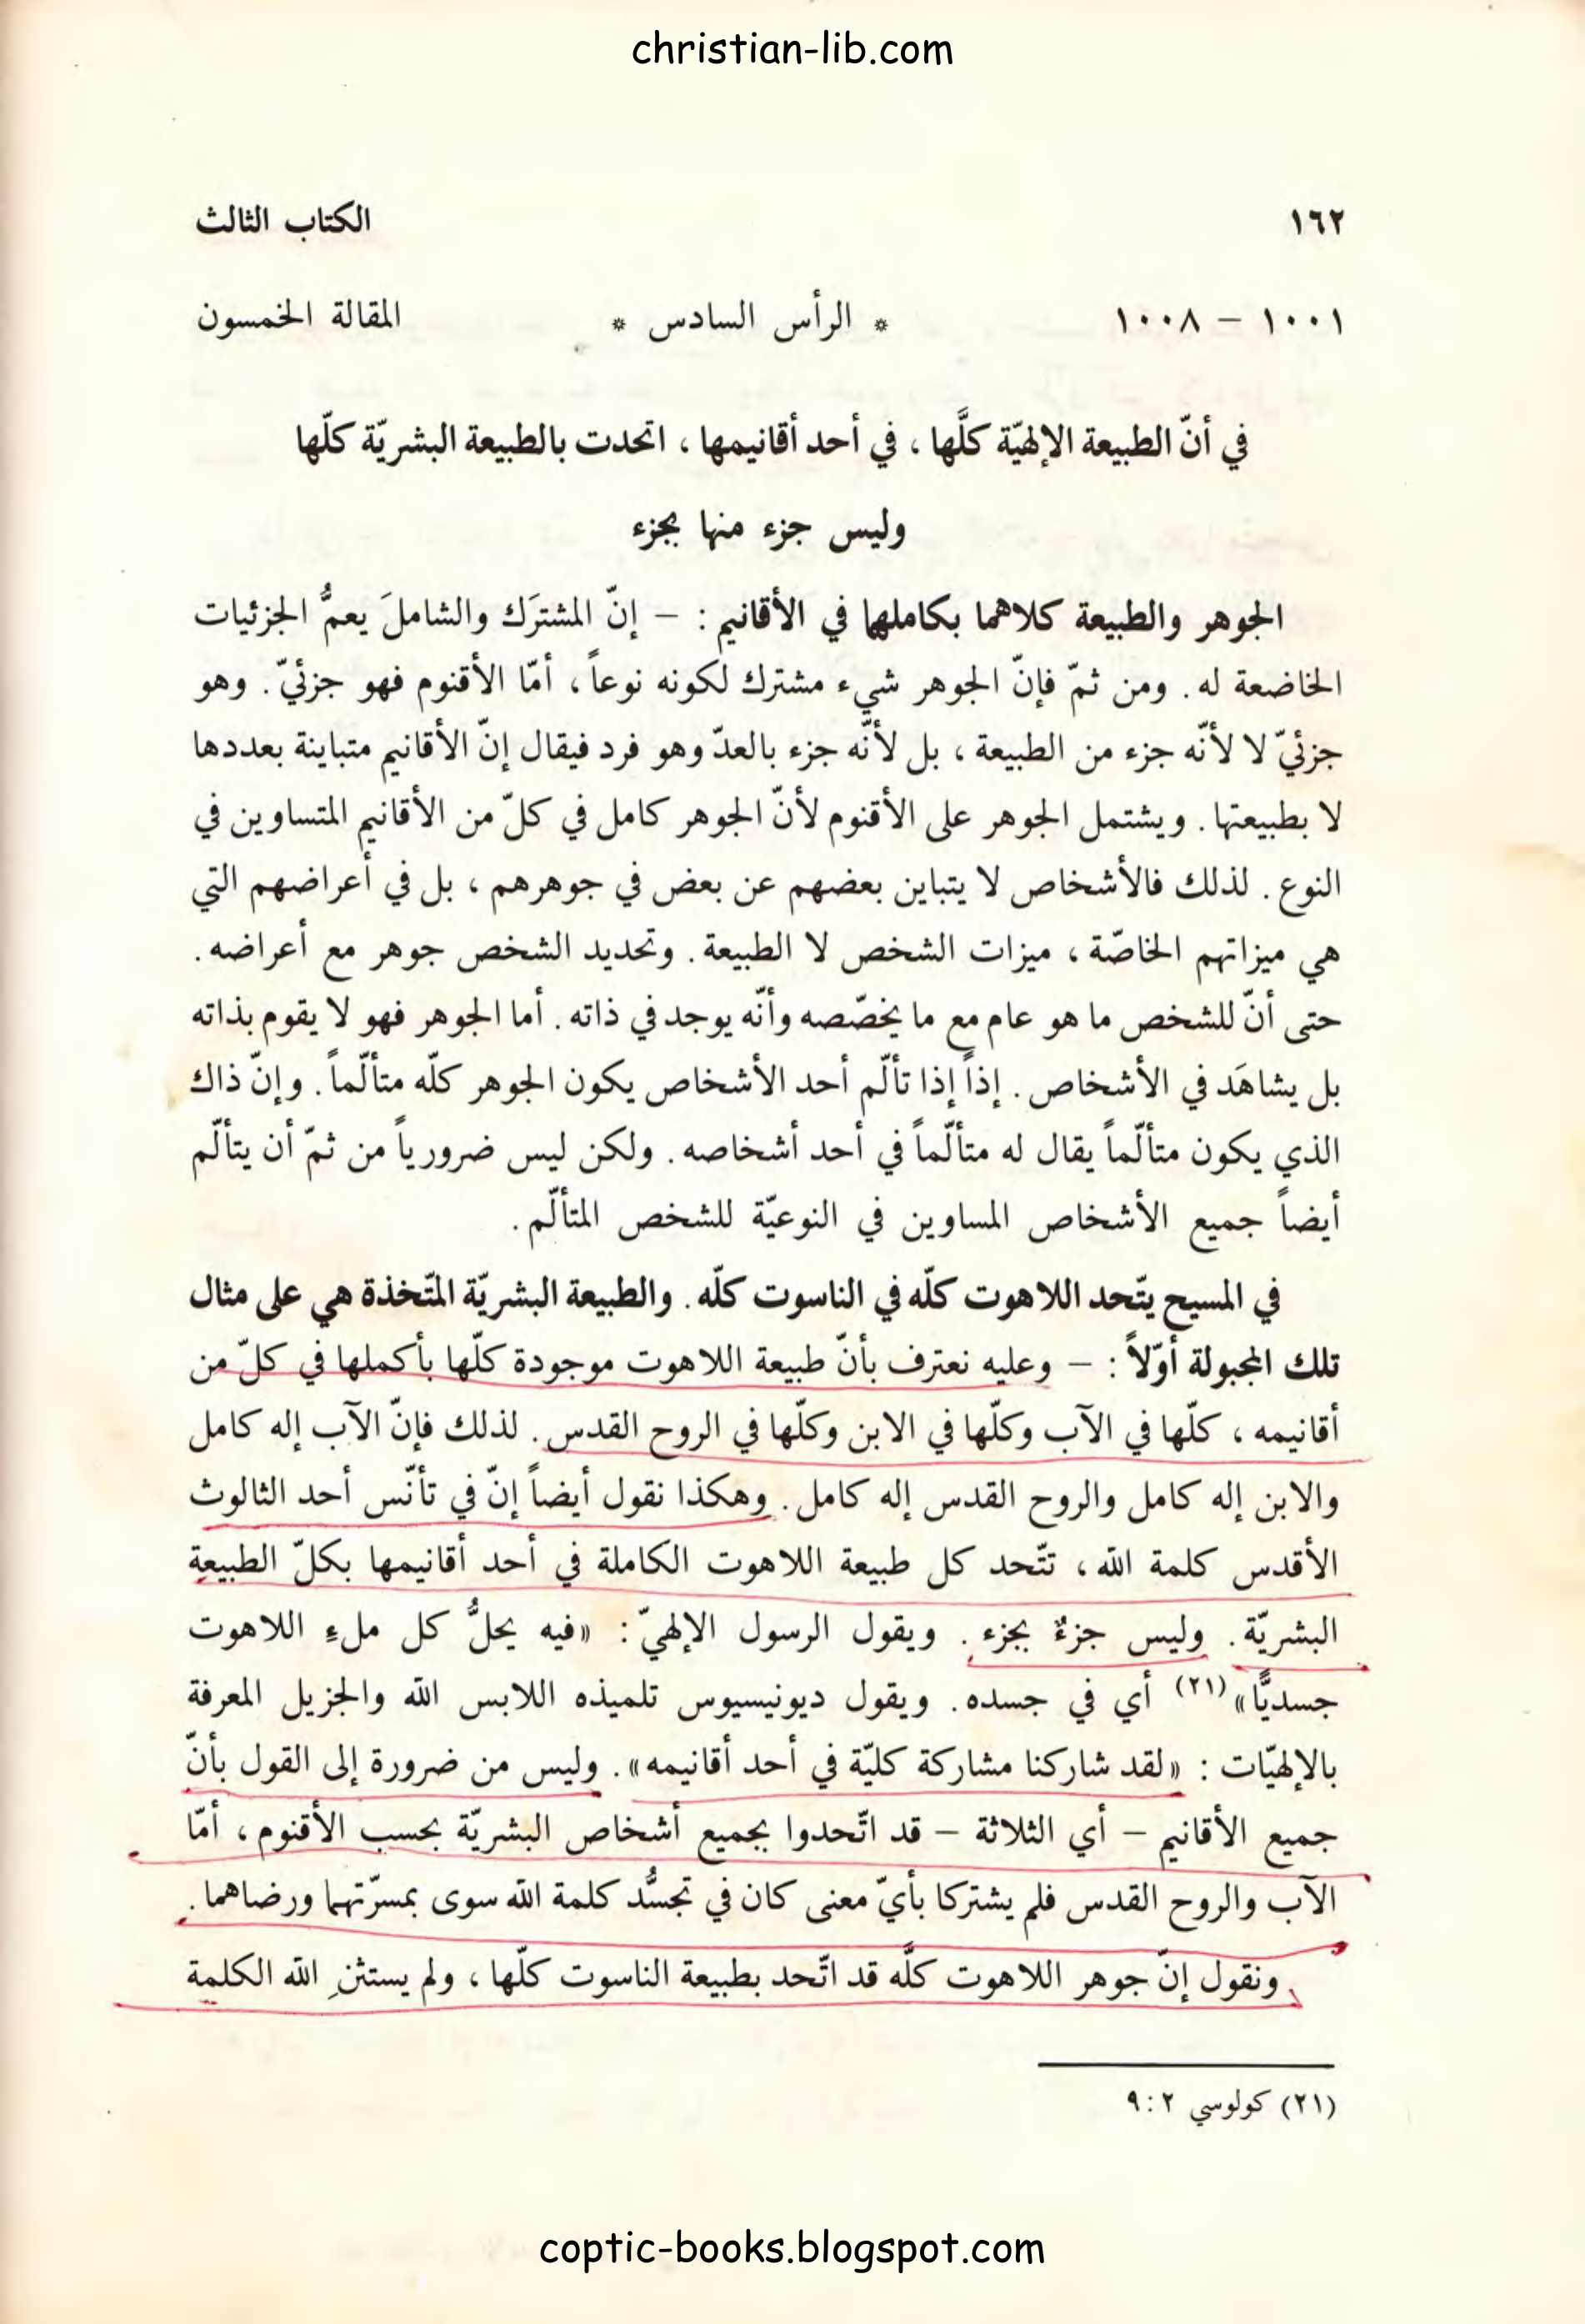 christian-lib.com
١٦٢ الكتاب الثالث
١٠٠١ – ١٠٠٨ * الرأس السادس * المقالة الخمسون
في أنّ الطبيعة الإلهيّة كلَّها ، في أحد أقانيمها ، اتحدت بالطبيعة البشريّة كلّها
وليس جزء منها بجزء
الجوهر والطبيعة كلاهما بكاملهما في الأقانيم : – إنّ المشترَك والشاملَ يعمُّ الجزئيات
الخاضعة له . ومن ثمّ فإنّ الجوهر شيء مشترك لكونه نوعاً ، أمّا الأقنوم فهو جزئيّ . وهو
جزئيّ لا لأنّه جزء من الطبيعة ، بل لأنّه جزء بالعدّ وهو فرد فيقال إنّ الأقانيم متباينة بعددها
لا بطبيعتها . ويشتمل الجوهر على الأقنوم لأنّ الجوهر كامل في كلّ من الأقانيم المتساوين في
النوع . لذلك فالأشخاص لا يتباين بعضهم عن بعض في جوهرهم ، بل في أعراضهم التي
هي ميزاتهم الخاصّة ، ميزات الشخص لا الطبيعة . وتحديد الشخص جوهر مع أعراضه .
حتى أنّ للشخص ما هو عام مع ما يخصّصه وأنّه يوجد في ذاته . أما الجوهر فهو لا يقوم بذاته
بل يشاهَد في الأشخاص . إذاً إذا تألّم أحد الأشخاص يكون الجوهر كلّه متألّماً . وإنّ ذاك
الذي يكون متألّماً يقال له متألّماً في أحد أشخاصه . ولكن ليس ضرورياً من ثمّ أن يتألّم
أيضاً جميع الأشخاص المساوين في النوعيّة للشخص المتألّم .
في المسيح يتّحد اللاهوت كلّه في الناسوت كلّه . والطبيعة البشريّة المتّخذة هي على مثال
تلك المجبولة أوّلاً : – وعليه نعترف بأنّ طبيعة اللاهوت موجودة كلّها بأكملها في كلّ من
أقانيمه ، كلّها في الآب وكلّها في الابن وكلّها في الروح القدس . لذلك فإنّ الآب إله كامل
والابن إله كامل والروح القدس إله كامل . وهكذا نقول أيضاً إنّ في تأنّس أحد الثالوث
الأقدس كلمة الله ، تتّحد كل طبيعة اللاهوت الكاملة في أحد أقانيمها بكلّ الطبيعة
البشريّة . وليس جزءٌ بجزء . ويقول الرسول الإلهيّ : «فيه يحلُّ كل ملءِ اللاهوت
جسديًّا» (٢١) أي في جسده . ويقول ديونيسيوس تلميذه اللابس الله والجزيل المعرفة
بالإلهيّات : «لقد شاركنا مشاركة كليّة في أحد أقانيمه» . وليس من ضرورة إلى القول بأنّ
جميع الأقانيم – أي الثلاثة – قد اتّحدوا بجميع أشخاص البشريّة بحسب الأقنوم ، أمّا
الآب والروح القدس فلم يشتركا بأيّ معنى كان في تجسُّد كلمة الله سوى بمسرّتهما ورضاهما .
ونقول إنّ جوهر اللاهوت كلَّه قد اتّحد بطبيعة الناسوت كلّها ، ولم يستثنِ الله الكلمة
(٢١) كولوسي ٢ : ٩
coptic-books.blogspot.com